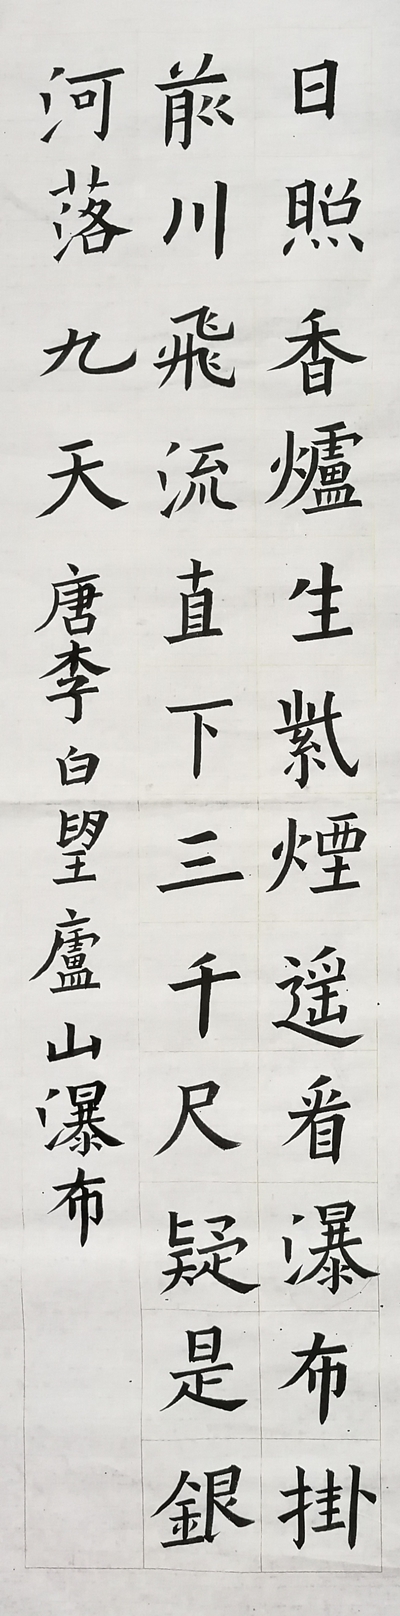 日照香爐生紫煙遥看瀑布掛
前川飛流直下三千尺疑是銀
河落九天唐李白望廬山瀑布